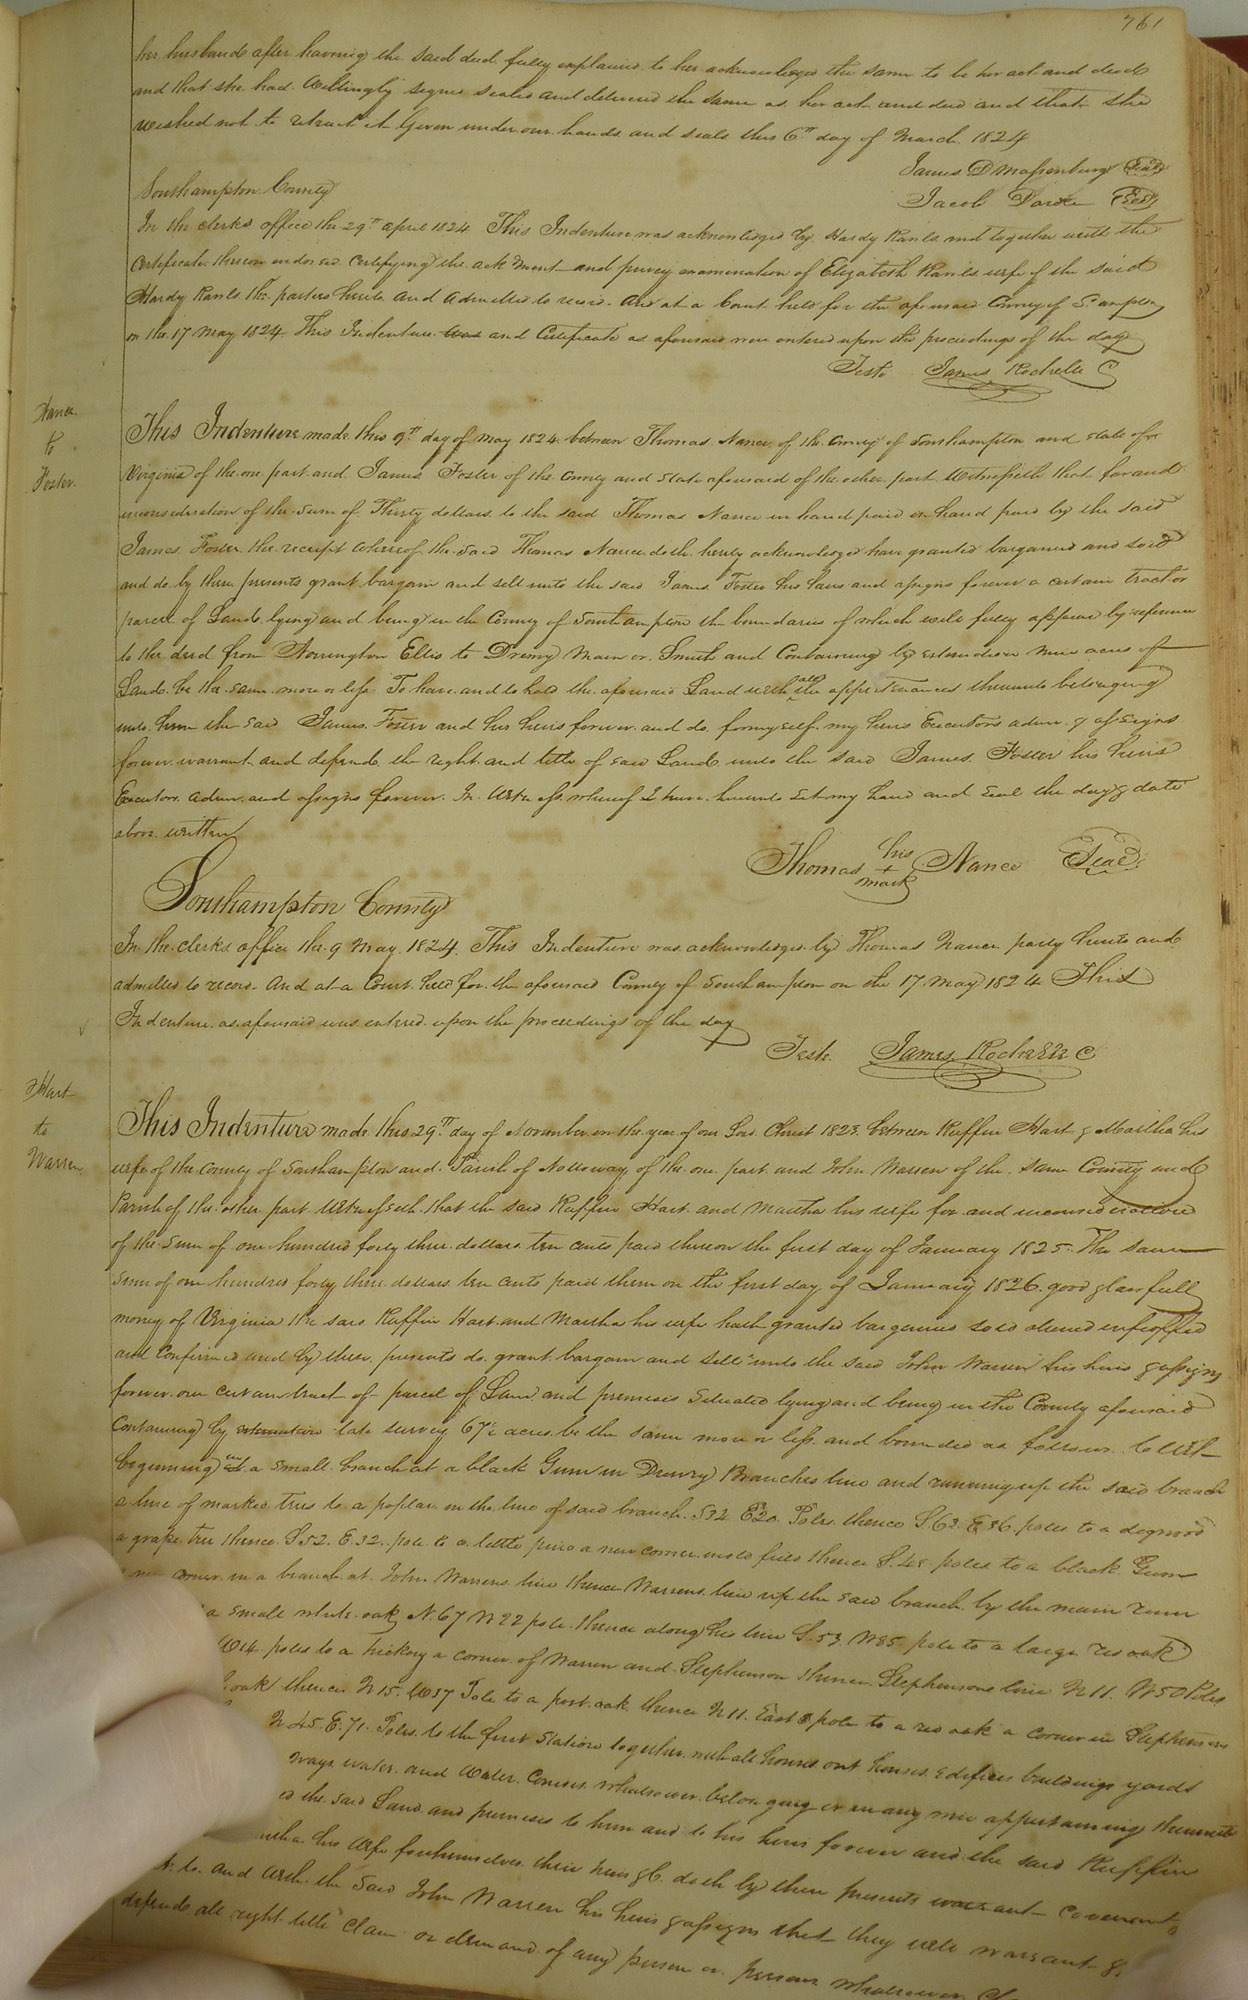 761
her husband after having the said deed fully explained to her acknowledged the same to be her act and deed
and that she had Willingly signed sealed and delivered the same as her act and deed and that she
wished not to retract it Given under our hands and seals this 6th day of March 1824
James D Massenburg Seal
Jacob Darden Seal
Southampton County
In the clerks office the 29th april 1824 This Indenture was acknowledged by Hardy and together with the
Certificate thereon endorsed certifying the ack'ment and privy examination of Elizabeth wife of the said
Hardy the parties hereto and admitted to record. And at a Court held for the aforesaid County of S.ampton
on the 17 May 1824 This Indenture was and Certificate as aforesaid were entered upon the proceedings of the day
Teste James Rochelle C
Nance
to
Foster
This Indenture made this 9th day of May 1824 between Thomas Nance of the County of Southampton and state of
Virginia of the one part and James Foster of the County and State aforesaid of the other part Witnesseth that for and
inconsideration of the sum of Thirty dollars to the said Thomas Nance in hand paid in hand paid by the said
James Foster the receipt whereof the said Thomas Nance doth hereby acknowledge have granted bargained and sold
and do by these presents grant bargain and sell unto the said James Foster his heirs and assigns forever a certain tract or
parcel of Land lying and being in the County of Southampton the boundaries of which will fully appear by reference
to the deed from Norrington Ellis to Drewry Smith and Containing by estimation nine acres of
Land be the same more or less To have and to hold the aforesaid Land with all the appurtenances thereunto belonging
unto him the said James Foster and his heirs forever and do for myself my heirs Executors adm. & assigns
forever warrant and defend the right and title of said Land unto the said James Foster his heirs
Executors adm. and assigns forever. In Witness whereof I have hereunto set my hand and seal the day & date
above written
Thomas his + mark Nance Seal
Southampton County
In the clerks office the 9 May 1824 This Indenture was acknowledged by Thomas Nance party hereto and
admitted to record. And at a Court held for the aforesaid County of Southampton on the 17 May 1824 This
Indenture as aforesaid was entered upon the proceedings of the day
Teste James Rochelle C
Hart
to
Warren
This Indenture made this 29th day of November in the year of our Lord Christ 1823 between Ruffin Hart & Martha his
wife of the County of Southampton and Parish of Nottoway of the one part and John Warren of the same County and
Parish of the other part Witnesseth that the said Ruffin Hart and Martha his wife for and inconsideration
of the sum of one hundred forty three dollars ten cents paid thereon the first day of January 1825 The same
sum of one hundred forty three dollars ten cents paid them on the first day of January 1826 good & lawfull
money of Virginia the said Ruffin Hart and Martha his wife hath granted bargained sold aliened enfeoffed
and Confirmed and by these presents do grant bargain and sell unto the said John Warren his heirs & assigns
forever one certain tract of parcel of Land and premises situated lying and being in the County aforesaid
Containing by estimation late survey acres be the same more or less and bounded as follows to wit
beginning in a small branch at a black Gum in Drewry Branches line and running up the said branch
a line of marked trees to a poplar in the line of said branch S32 E20 Poles thence S63 E36 poles to a dogwood
a grape tree thence S52. E.32. pole to a little pine a new corner in old field thence S.48 poles to a black Gum
corner in a branch at John Warrens line thence Warrens line up the said branch by the main run
a small white oak N.67 W22 pole thence along his line S.53 W85 pole to a large red oak
W14 poles to a hickory a corner of Warren and Stephenson thence Stephensons line N11. W50 Poles
oak thence N15. W37 Pole to a post oak thence N11 East 8 pole to a red oak a corner in Stephensons
N45.E.71. Poles to the first station together with all houses out houses edifices buildings yards
ways water and Water Courses whatsoever belonging or in any wise appertaining thereunto
the said Land and premises to him and to his heirs forever and the said Ruffin
his Wife for themselves their heirs &c doth by these presents Covenant
to and with the said John Warren his heirs & assigns that they will warrant &
defend all right title Claim or demand of any person or persons whatsoever